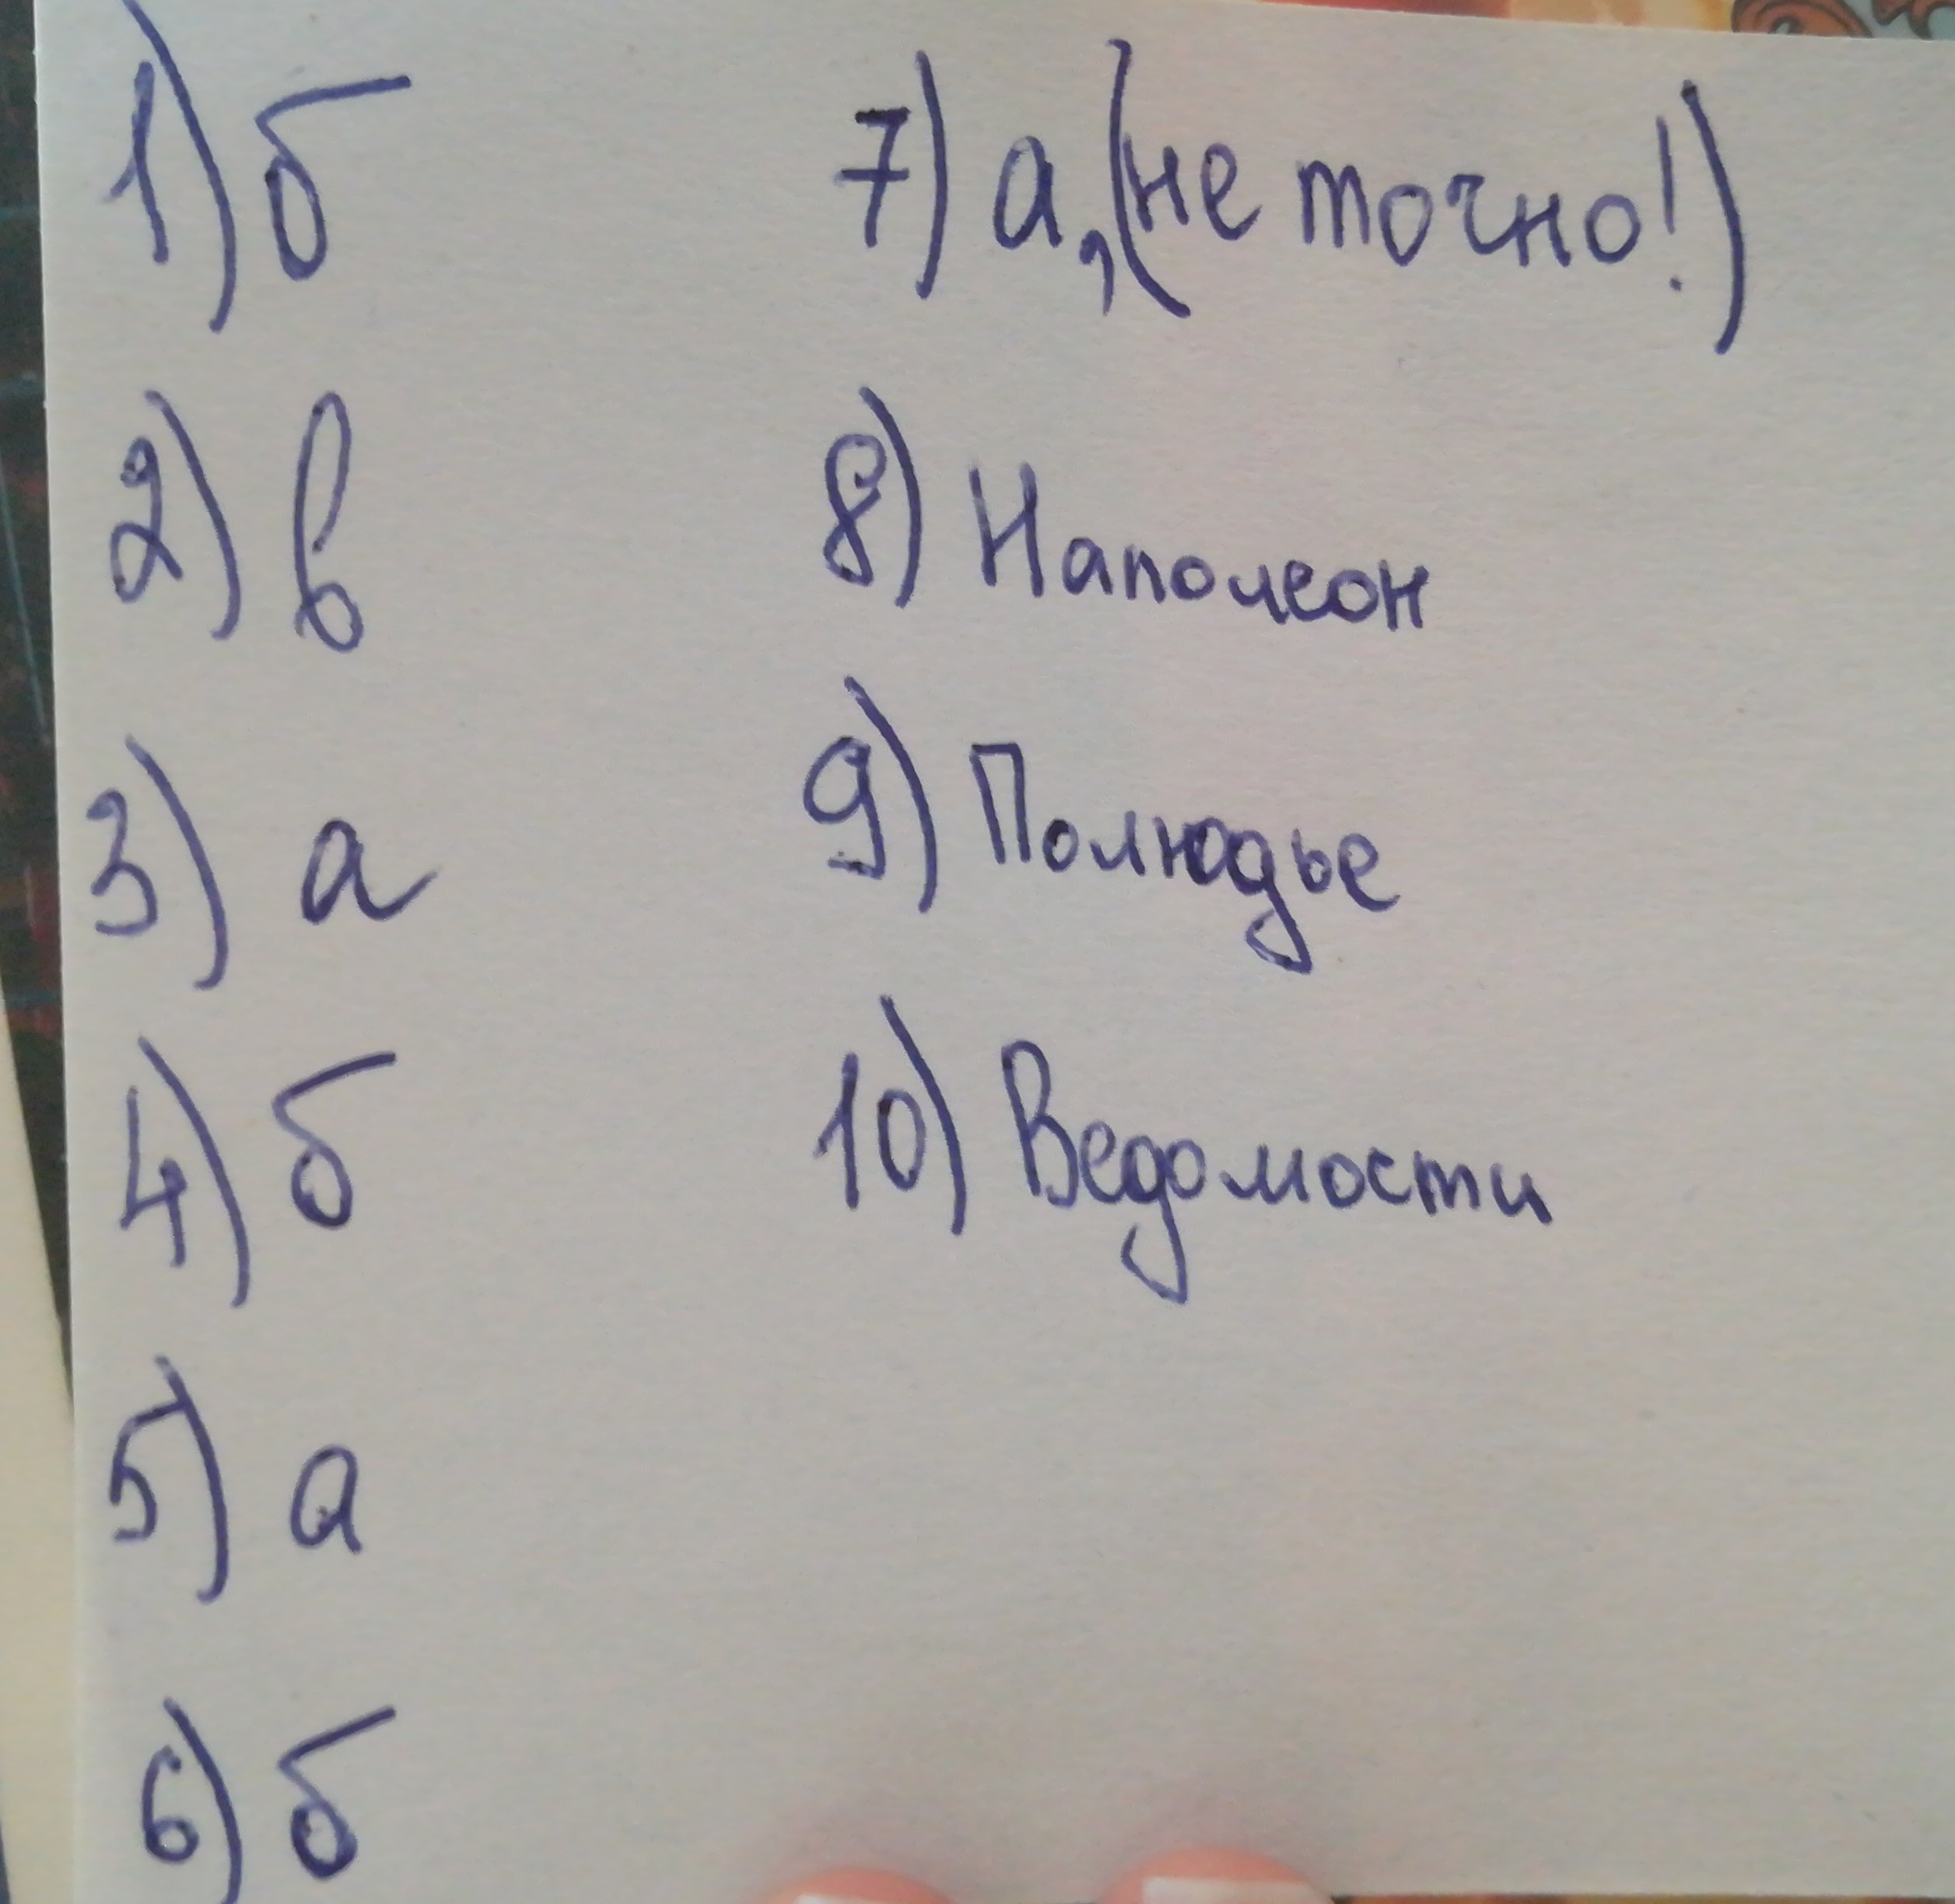 1) б
2) в
3) а
4) б
5) а
6) б
7) а, (не точно!)
8) Наполеон
9) Полюдье
10) Ведомости